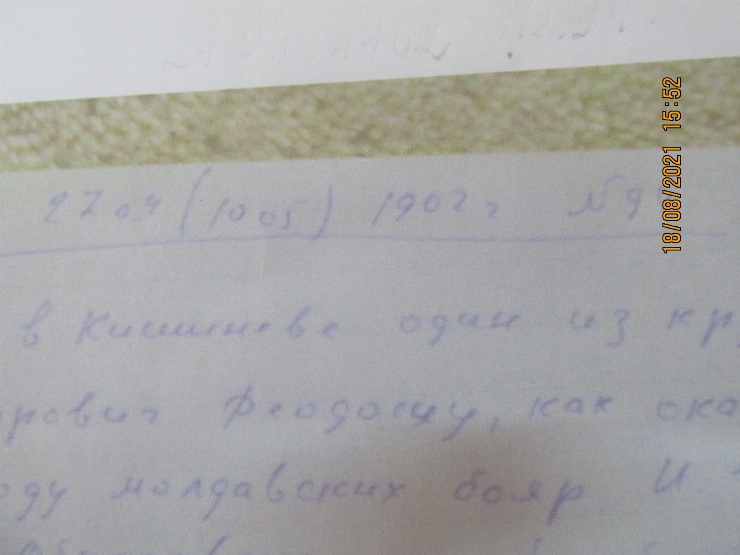 27 04 (10 05) 1902 г № 9
в Кишиневе один из кр
рович Феодосиу, как ока
оду молдавских бояр И.
18/08/2021 15:52